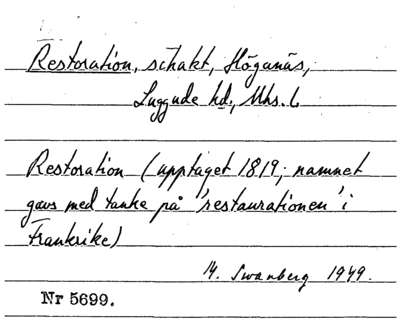 Restoration, schakt, Höganäs,
Luggude hd., Mhs. l.
Restoration (upptaget 1819; namnet
gavs med tanke på 'restaurationen' i
Frankrike)
H. Swanberg 1949.
Nr 5699.